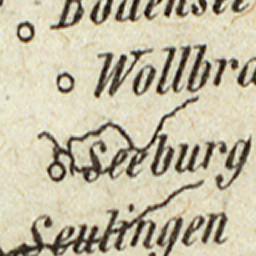 Bodensee
Wollbra
Seeburg
Seulingen